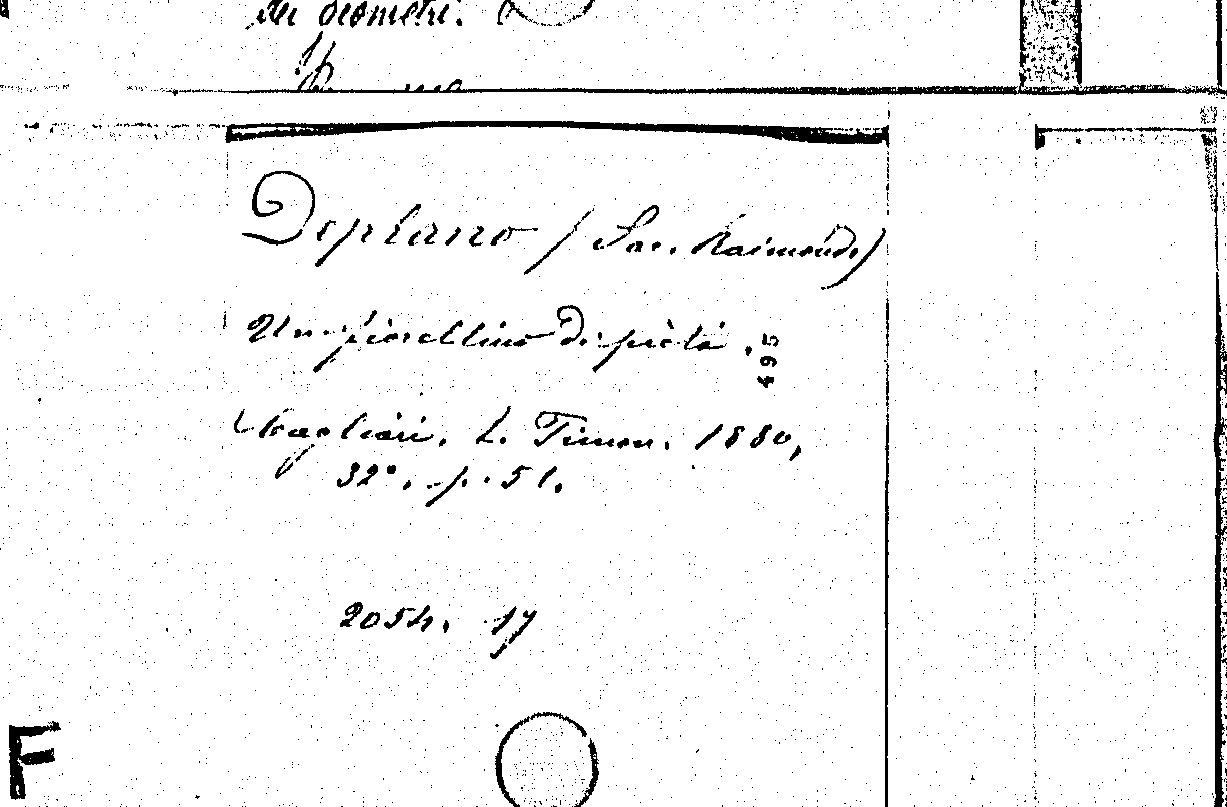 dei geometri.
Deplano (Sac. Raimondo)
Un fiorellino di pietà.
495
Cagliari. L. Timon. 1880,
32°. p. 51.
2054. 17
F